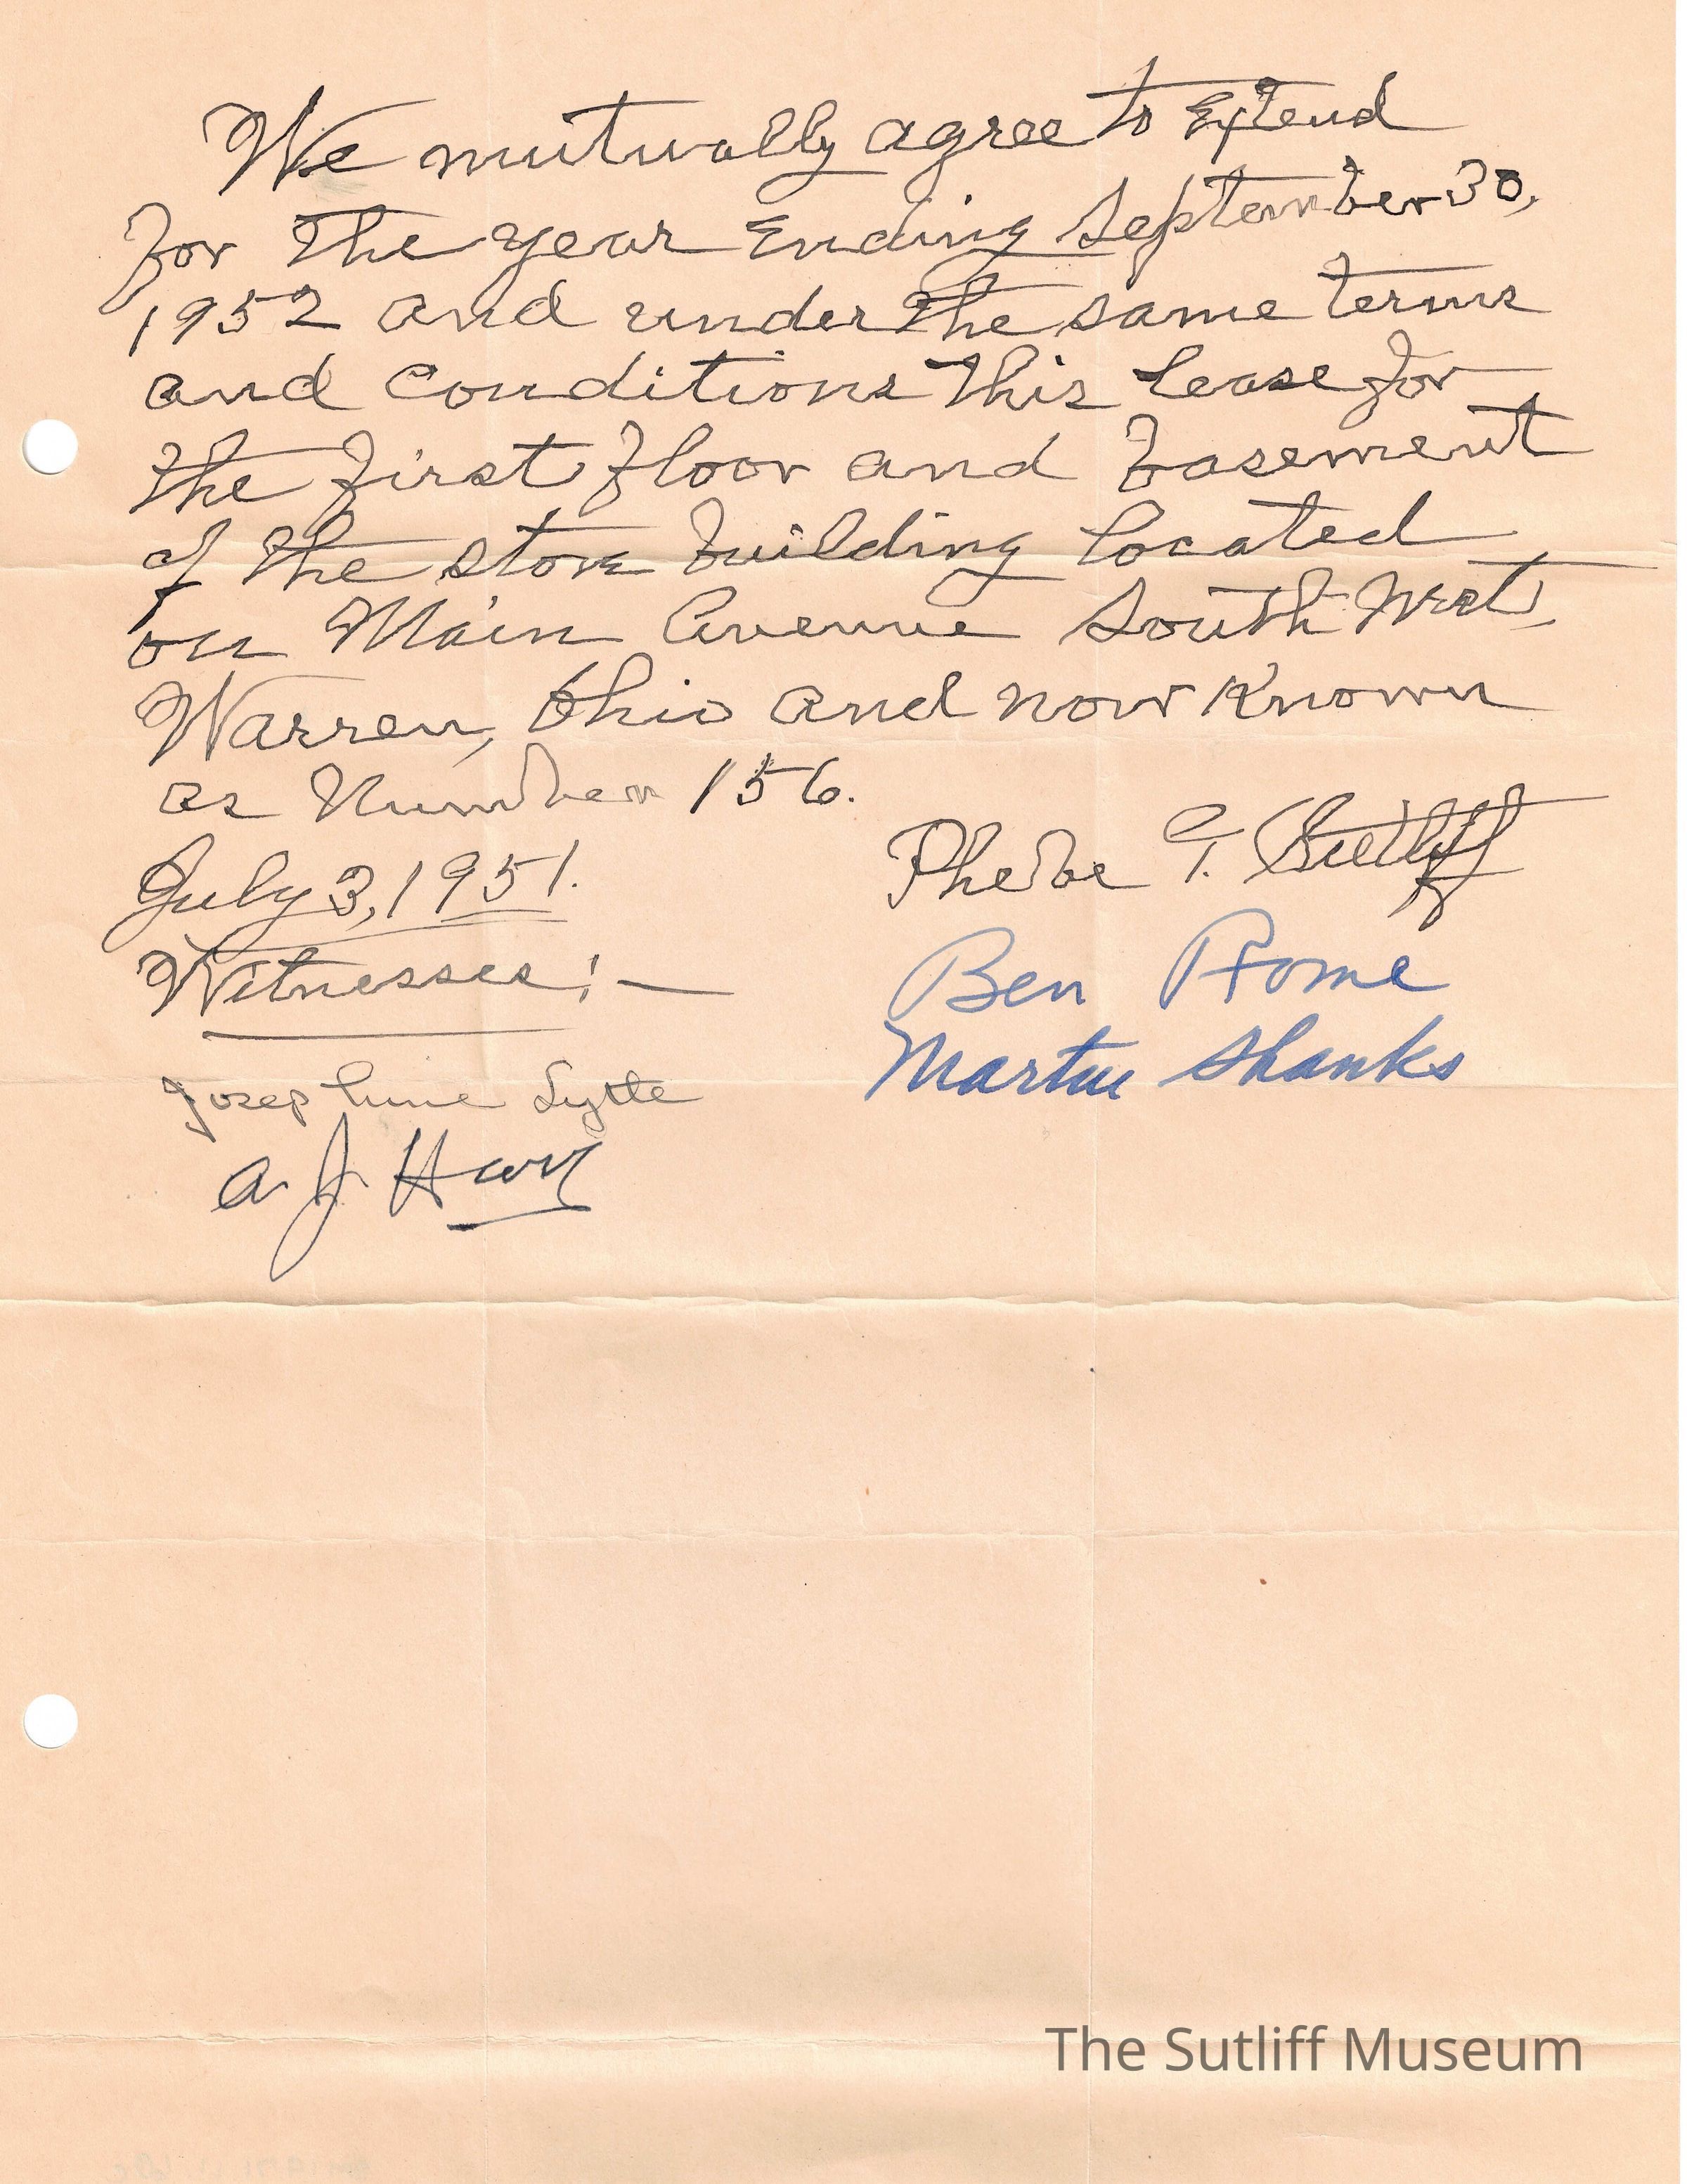 We mutually agree to Extend
for the year Ending September 30,
1952 and under the same terms
and conditions this lease for
the first floor and basement
of the store building located
on Main Avenue South West,
Warren, Ohio and now known
as Number 156.
July 3, 1951.
Phebe T. Sutliff
Witnesses:—
Ben Rome
Martin Shanks
Josephine Lytle
A. J.
The Sutliff Museum